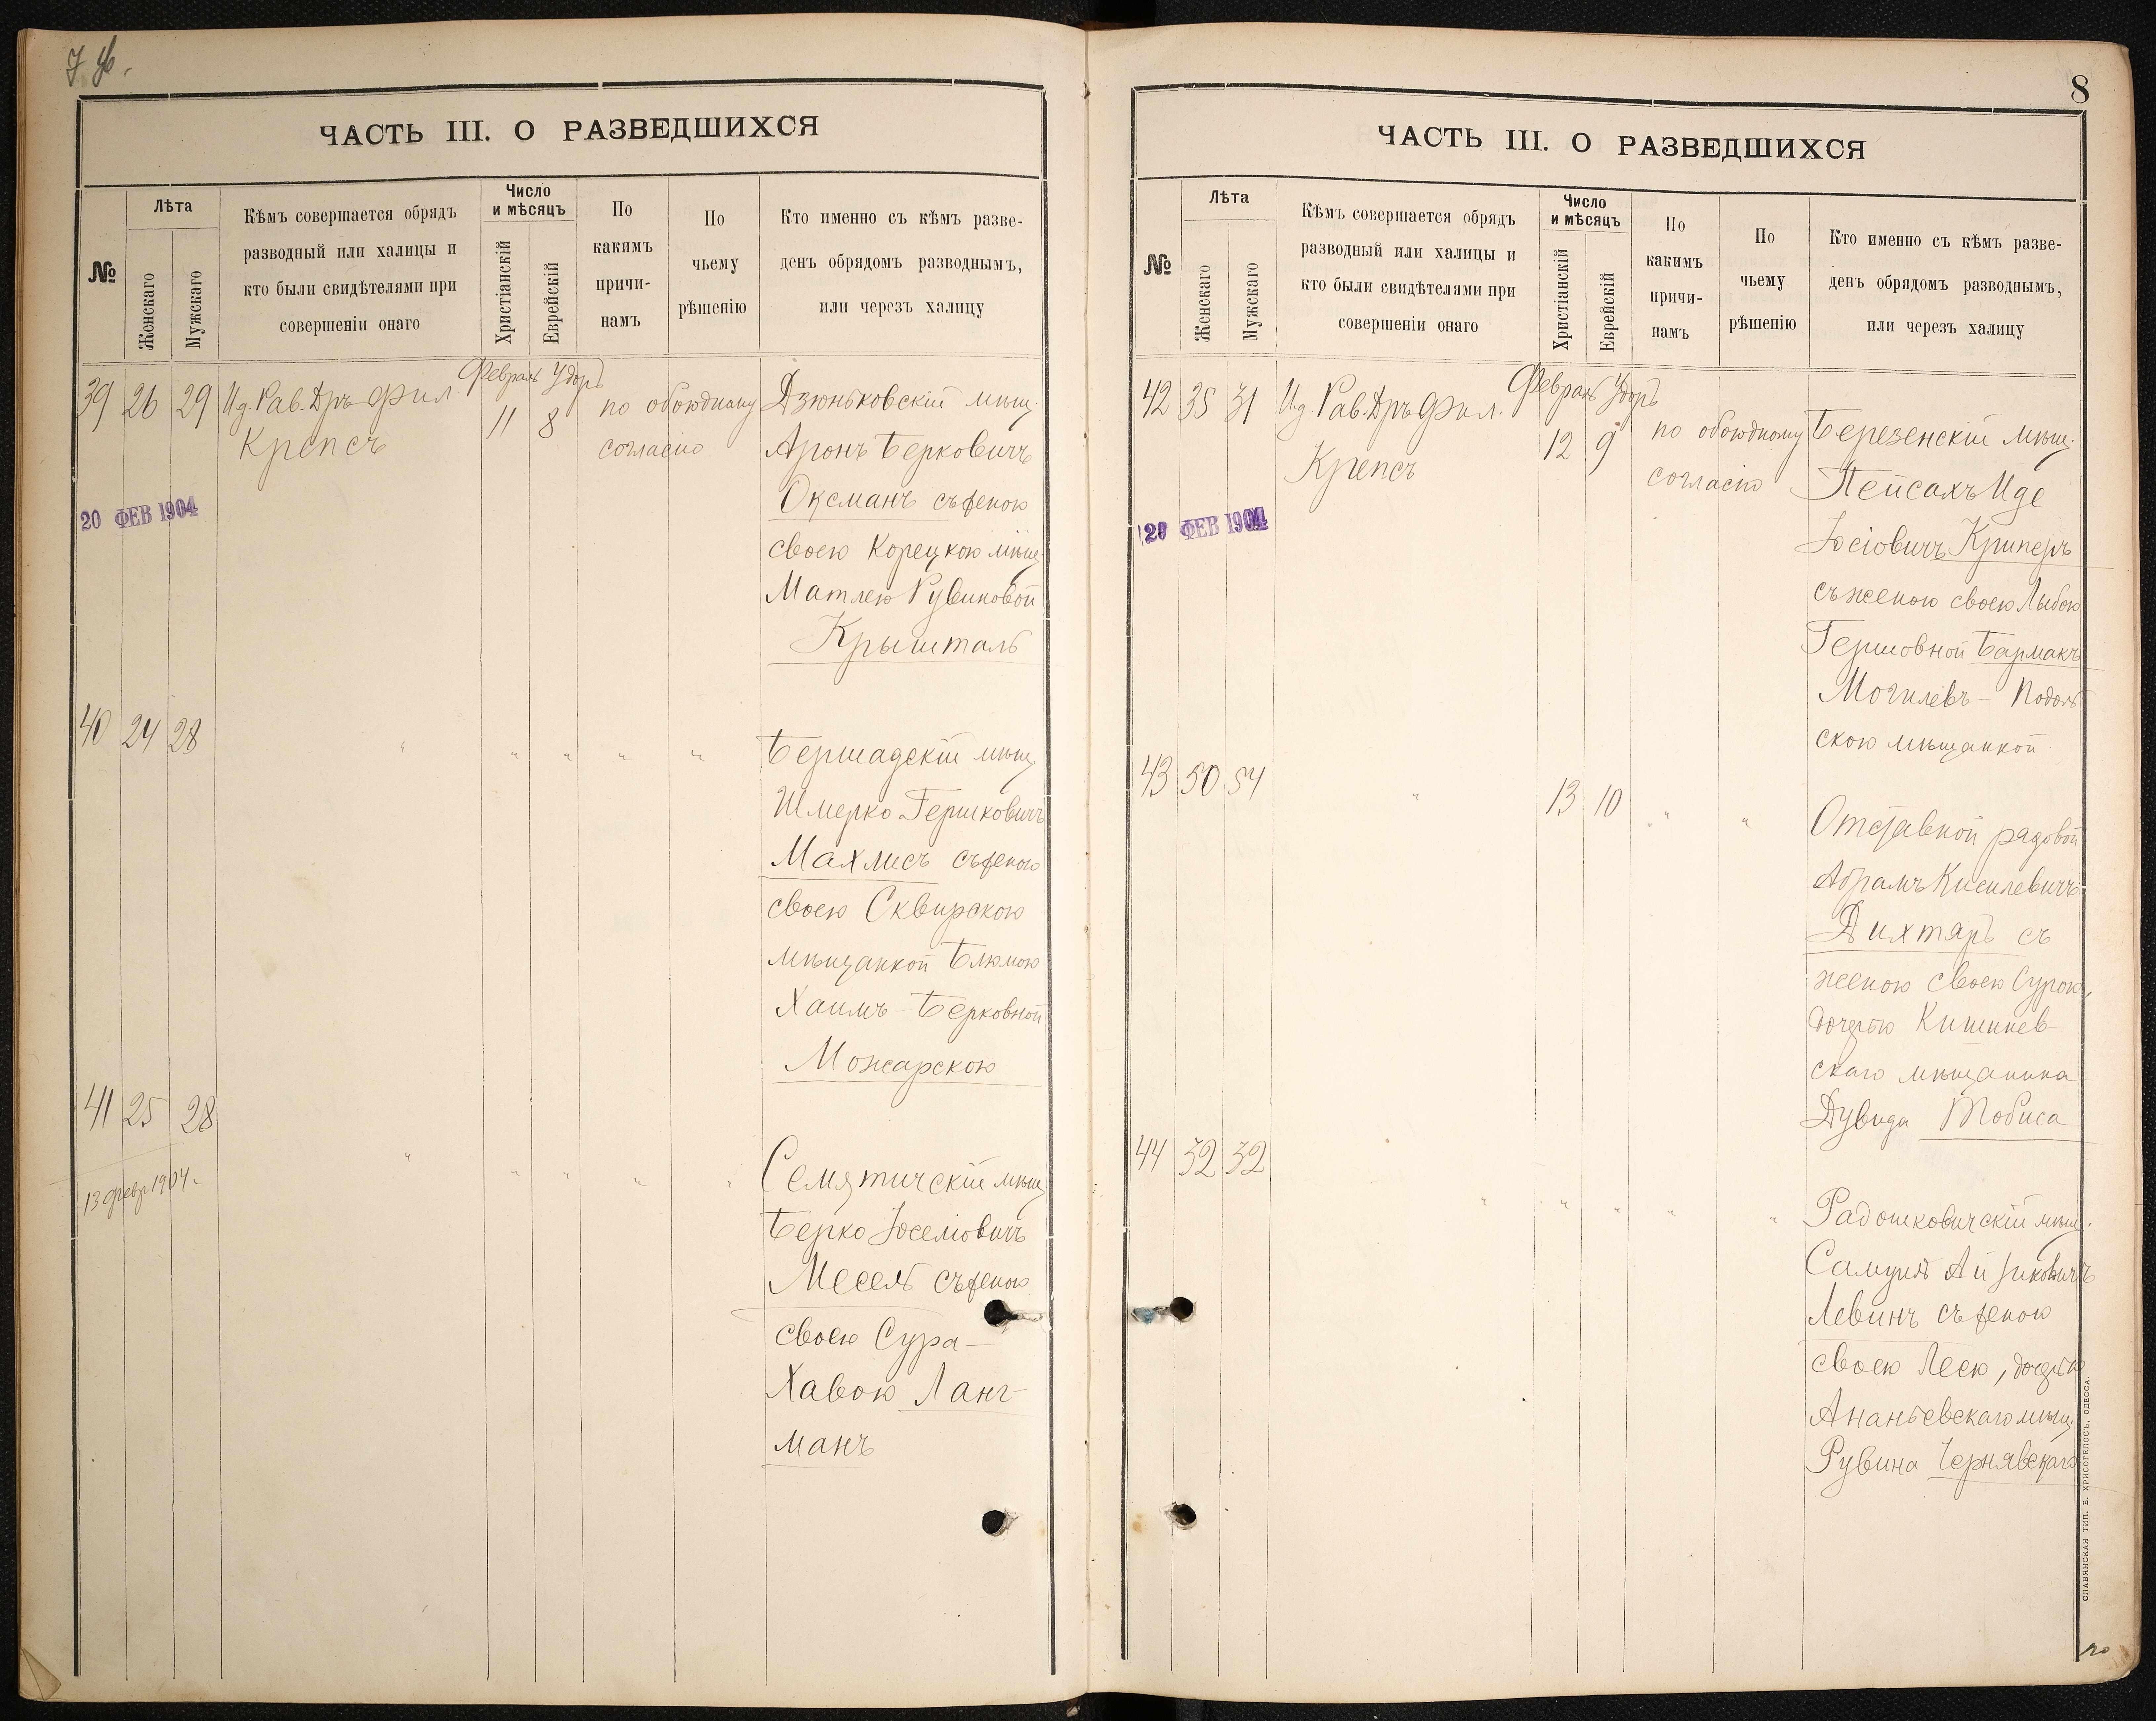 ЧАСТЬ III. О РАЗВЕДШИХСЯ
№
Лѣта
Женскаго
Мужскаго
Кѣмъ совершается обрядъ
разводный или халицы и
кто были свидѣтелями при
совершеніи онаго
Число
и мѣсяцъ
Христіанскій
Еврейскій
По
какимъ
причи-
намъ
По
чьему
рѣшенію
Кто именно съ кѣмъ разве-
денъ обрядомъ разводнымъ,
или черезъ халицу
Февраль Удоръ
39 26 29 И.д. Рав. Дръ Фил 11 8 по обоюдному Дзюньковскій мѣщ.
Крепсъ согласію Аронъ Берковичъ
20 ФЕВ 1904
Оксманъ съ женою
своею Корецкою мѣщ.
Матлею Рувиновой
Крышталь
40 24 28 " " " " " Бершадскій мѣщ.
Шмерко Гершковичъ
Махлисъ съ женою
своею Сквирскою
мѣщанкой Блюмою
Хаимъ-Берковной
Можарскою
41 25 28 " " " " " Семятичскій мѣщ.
13 февр 1904
Берко Іоселіовичъ
Месель съ женою
своею Сура-
Хавою Ланг-
манъ
8
ЧАСТЬ III. О РАЗВЕДШИХСЯ
№
Лѣта
Женскаго
Мужскаго
Кѣмъ совершается обрядъ
разводный или халицы и
кто были свидѣтелями при
совершеніи онаго
Число
и мѣсяцъ
Христіанскій
Еврейскій
По
какимъ
причи-
намъ
По
чьему
рѣшенію
Кто именно съ кѣмъ разве-
денъ обрядомъ разводнымъ,
или черезъ халицу
Февраль Удоръ
42 35 31 И.д. Рав. Дръ Фил. 12 9 по обоюдному Березенскій мѣщ.
Крепсъ согласію Пейсахъ Иде
20 ФЕВ 1904
Іосіовичъ Криперъ
съ женою своею Лыбою
Гершовной Бармакъ
Могилевъ-Подоль
скою мѣщанкой
43 50 54 " 13 10 " " Отставной рядовой
Абрамъ Кисилевичъ
Дихтяръ съ
женою своею Сурою,
дочерью Кишинев-
скаго мѣщанина
Дувида Тобиса
44 32 32 " " " " " Радошковичскій мѣщ.
Самуилъ Айзиковичъ
Левинъ съ женою
своею Леею, дочерью
Ананьевскаго мѣщ.
Рувина Чернявскаго
СЛАВЯНСКАЯ ТИП. Е. ХРИСОГЕЛОСЪ, ОДЕССА.